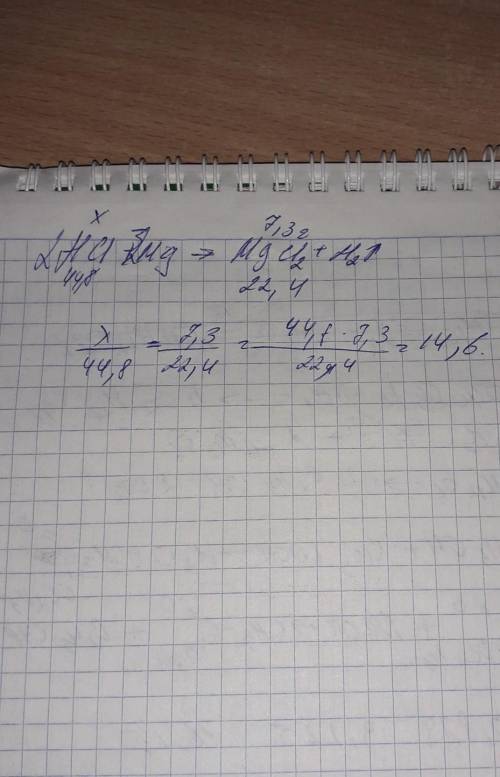 x 7,3г
2HCl + Mg → MgCl₂ + H₂↑
44,8 22,4
x/44,8 = 7,3/22,4 = 44,8 · 7,3/22,4 = 14,6.